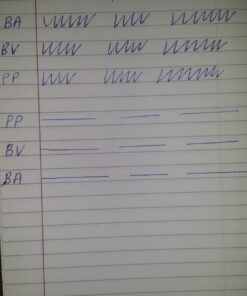 BA
BV
PP
PP
BV
BA